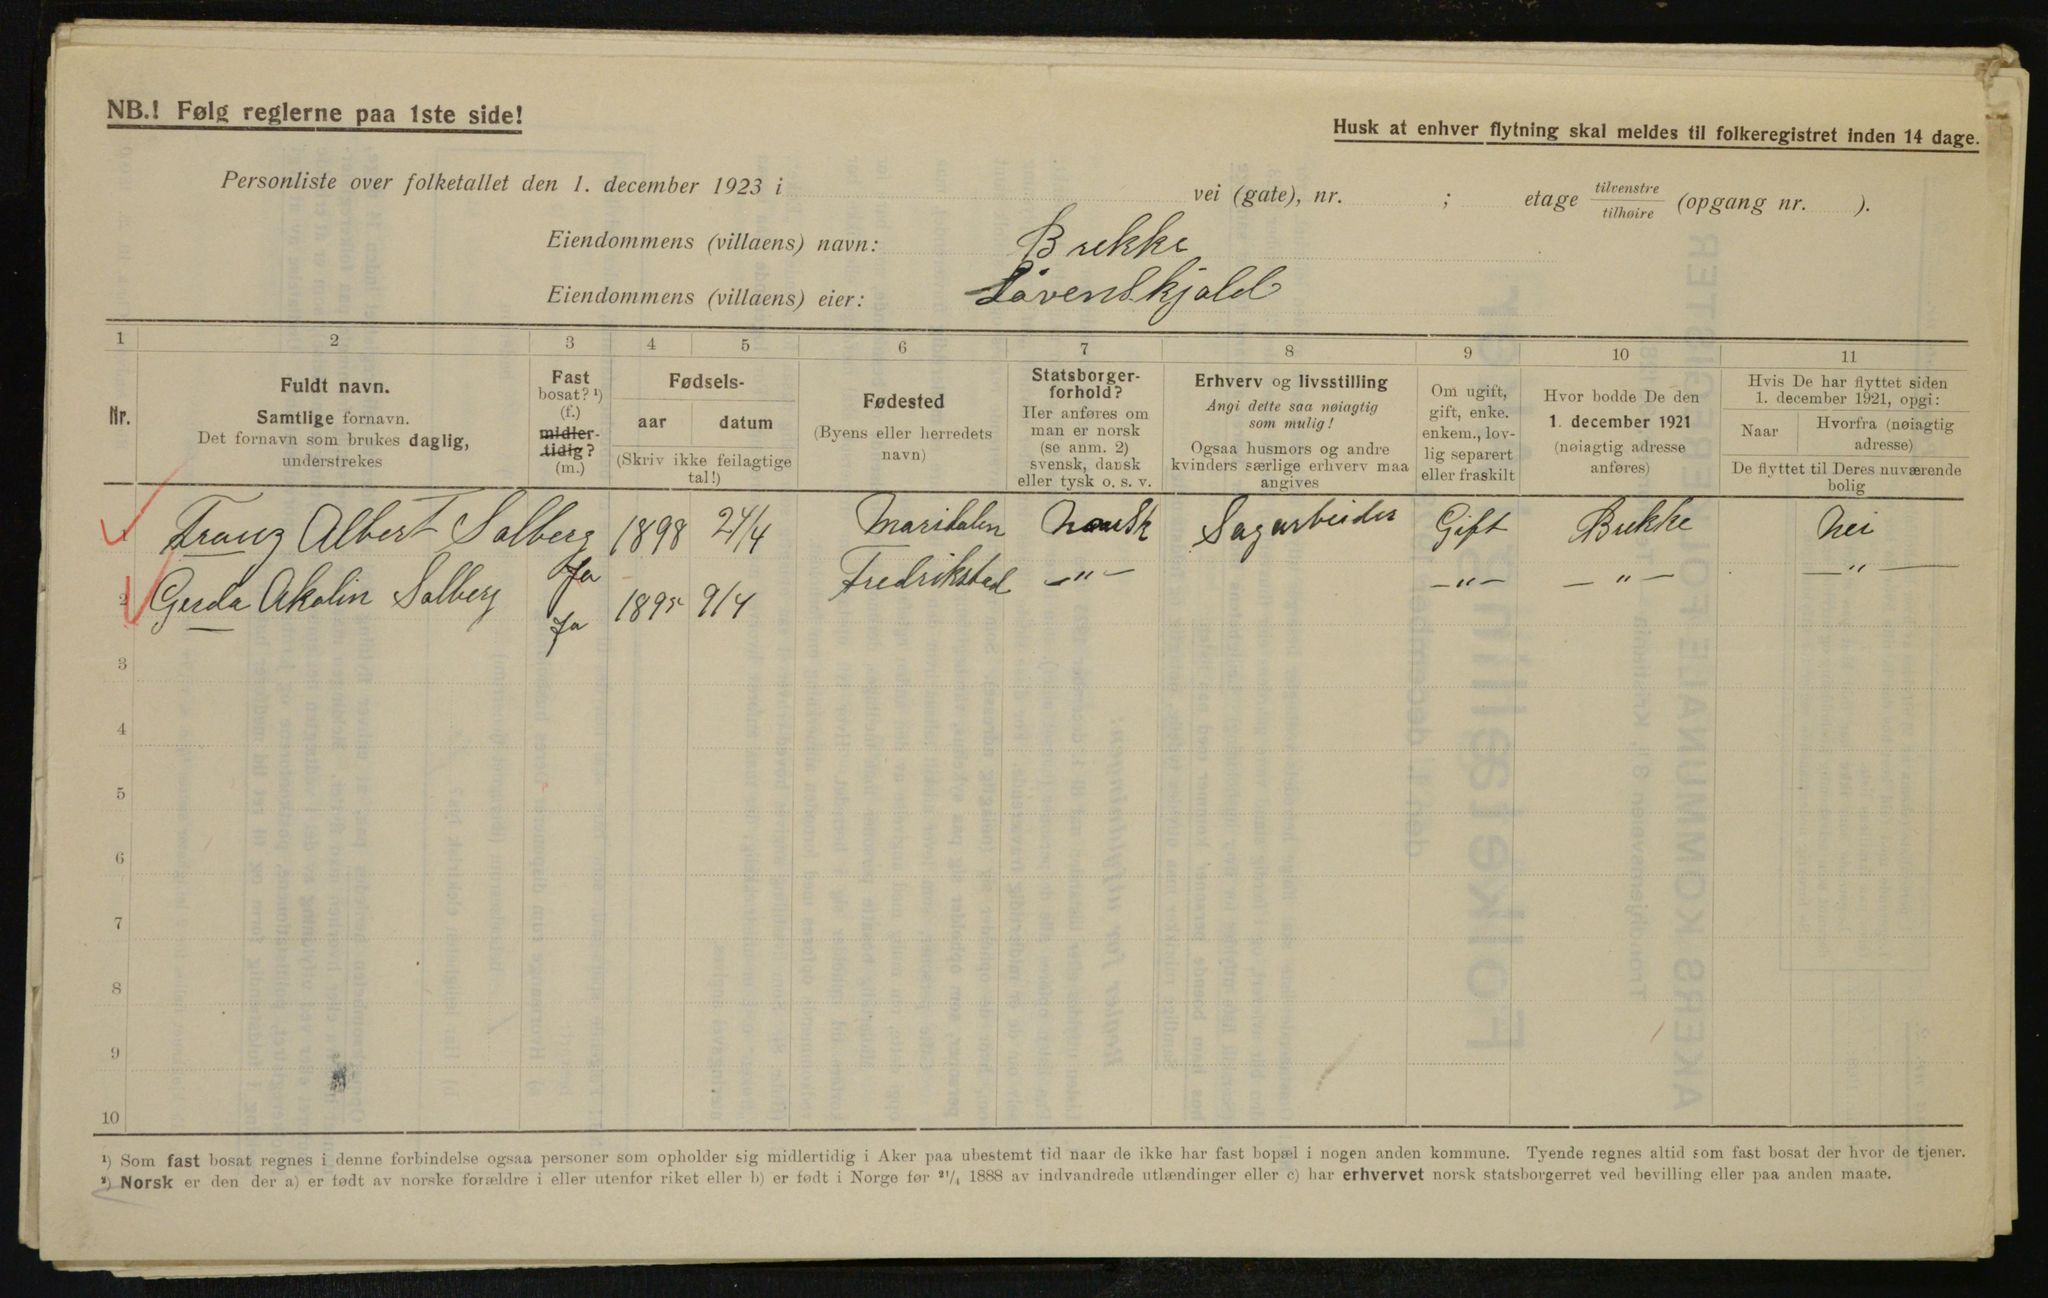 NB.! Følg reglerne paa 1ste side!
Husk at enhver flytning skal meldes til folkeregistret inden 14 dage.
Personliste over folketallet den 1. december 1923 i vei (gate), nr. ; etage tilvenstre tilhøire (opgang nr. ).
Eiendommens (villaens) navn: Brekke
Eiendommens (villaens) eier: Løvenskjold
1 2 3 4 5 6 7 8 9 10 11
Nr.
Fuldt navn.
Samtlige fornavn.
Det fornavn som brukes daglig,
understrekes
Fast
bosat? ¹)
(f.)
midler-
tidig?
(m.)
Fødsels-
aar datum
(Skriv ikke feilagtige
tal!)
Fødested
(Byens eller herredets
navn)
Statsborger-
forhold?
Her anføres om
man er norsk
(se anm. 2)
svensk, dansk
eller tysk o. s. v.
Erhverv og livsstilling
Angi dette saa nøiagtig
som mulig!
Ogsaa husmors og andre
kvinders særlige erhverv maa
angives
Om ugift,
gift, enke.
enkem., lov-
lig separert
eller fraskilt
Hvor bodde De den
1. december 1921
(nøiagtig adresse
anføres)
Hvis De har flyttet siden
1. december 1921, opgi:
Naar
Hvorfra (nøiagtig
adresse)
De flyttet til Deres nuværende
bolig
1 Franz Albert Solberg Ja 1898 24/4 Maridalen Norsk Sagarbeider Gift Brekke Nei
2 Gerda Akolin Solberg Ja 1895 9/4 Fredrikstad —"— —"— —"— —"—
3
4
5
6
7
8
9
10
¹) Som fast bosat regnes i denne forbindelse ogsaa personer som opholder sig midlertidig i Aker paa ubestemt tid naar de ikke har fast bopæl i nogen anden kommune. Tyende regnes altid som fast bosat der hvor de tjener.
²) Norsk er den der a) er født av norske forældre i eller utenfor riket eller b) er født i Norge før 21/4 1888 av indvandrede utlændinger eller c) har erhvervet norsk statsborgerret ved bevilling eller paa anden maate.